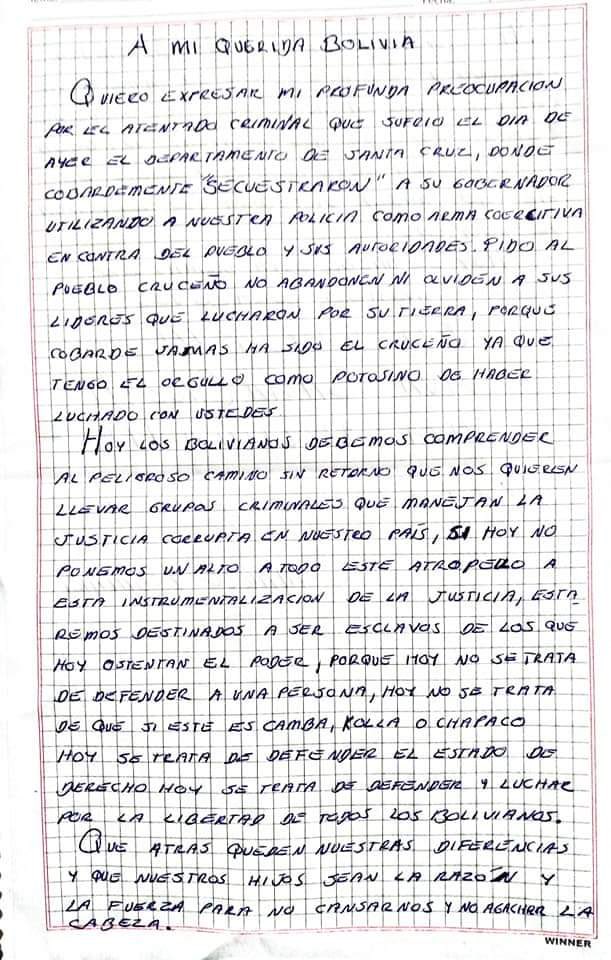 A MI QUERIDA BOLIVIA
QUIERO EXPRESAR MI PROFUNDA PREOCUPACION
POR EL ATENTADO CRIMINAL QUE SUFRIO EL DIA DE
AYER EL DEPARTAMENTO DE SANTA CRUZ, DONDE
COBARDEMENTE "SECUESTRARON" A SU GOBERNADOR
UTILIZANDO A NUESTRA POLICIA COMO ARMA COERCITIVA
EN CONTRA DEL PUEBLO Y SUS AUTORIDADES. PIDO AL
PUEBLO CRUCEÑO NO ABANDONEN NI OLVIDEN A SUS
LIDERES QUE LUCHARON POR SU TIERRA, PORQUE
COBARDE JAMAS HA SIDO EL CRUCEÑO YA QUE
TENGO EL ORGULLO COMO POTOSINO DE HABER
LUCHADO CON USTEDES
HOY LOS BOLIVIANOS DEBEMOS COMPRENDER
AL PELIGROSO CAMINO SIN RETORNO QUE NOS QUIEREN
LLEVAR GRUPOS CRIMINALES QUE MANEJAN LA
JUSTICIA CORRUPTA EN NUESTRO PAÍS, SI HOY NO
PONEMOS UN ALTO A TODO ESTE ATROPELLO A
ESTA INSTRUMENTALIZACION DE LA JUSTICIA, ESTA
REMOS DESTINADOS A SER ESCLAVOS DE LOS QUE
HOY OSTENTAN EL PODER, PORQUE HOY NO SE TRATA
DE DEFENDER A UNA PERSONA, HOY NO SE TRATA
DE QUE SI ESTE ES CAMBA, KOLLA O CHAPACO
HOY SE TRATA DE DEFENDER EL ESTADO DE
DERECHO HOY SE TRATA DE DEFENDER Y LUCHAR
POR LA LIBERTAD DE TODOS LOS BOLIVIANOS.
QUE ATRAS QUEDEN NUESTRAS DIFERENCIAS
Y QUE NUESTROS HIJOS SEAN LA RAZÓN Y
LA FUERZA PARA NO CANSARNOS Y NO AGACHAR LA
CABEZA.
WINNER